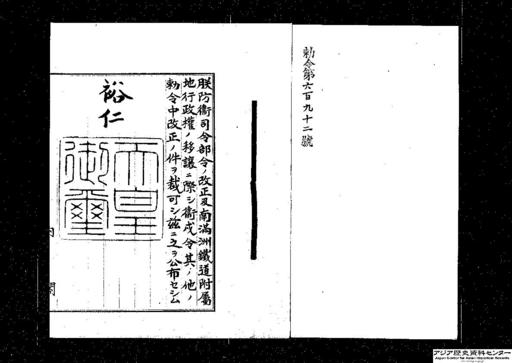 勅令第六百九十二號
朕防衞司令部令ノ改正及南滿洲鐵道附屬
地行政權ノ移讓ニ際シ衞戍令其ノ他ノ
勅令中改正ノ件ヲ裁可シ玆ニ之ヲ公布セシム
裕仁
天皇御璽
内閣
アジア歴史資料センター
Japan Center for Asian Historical Records